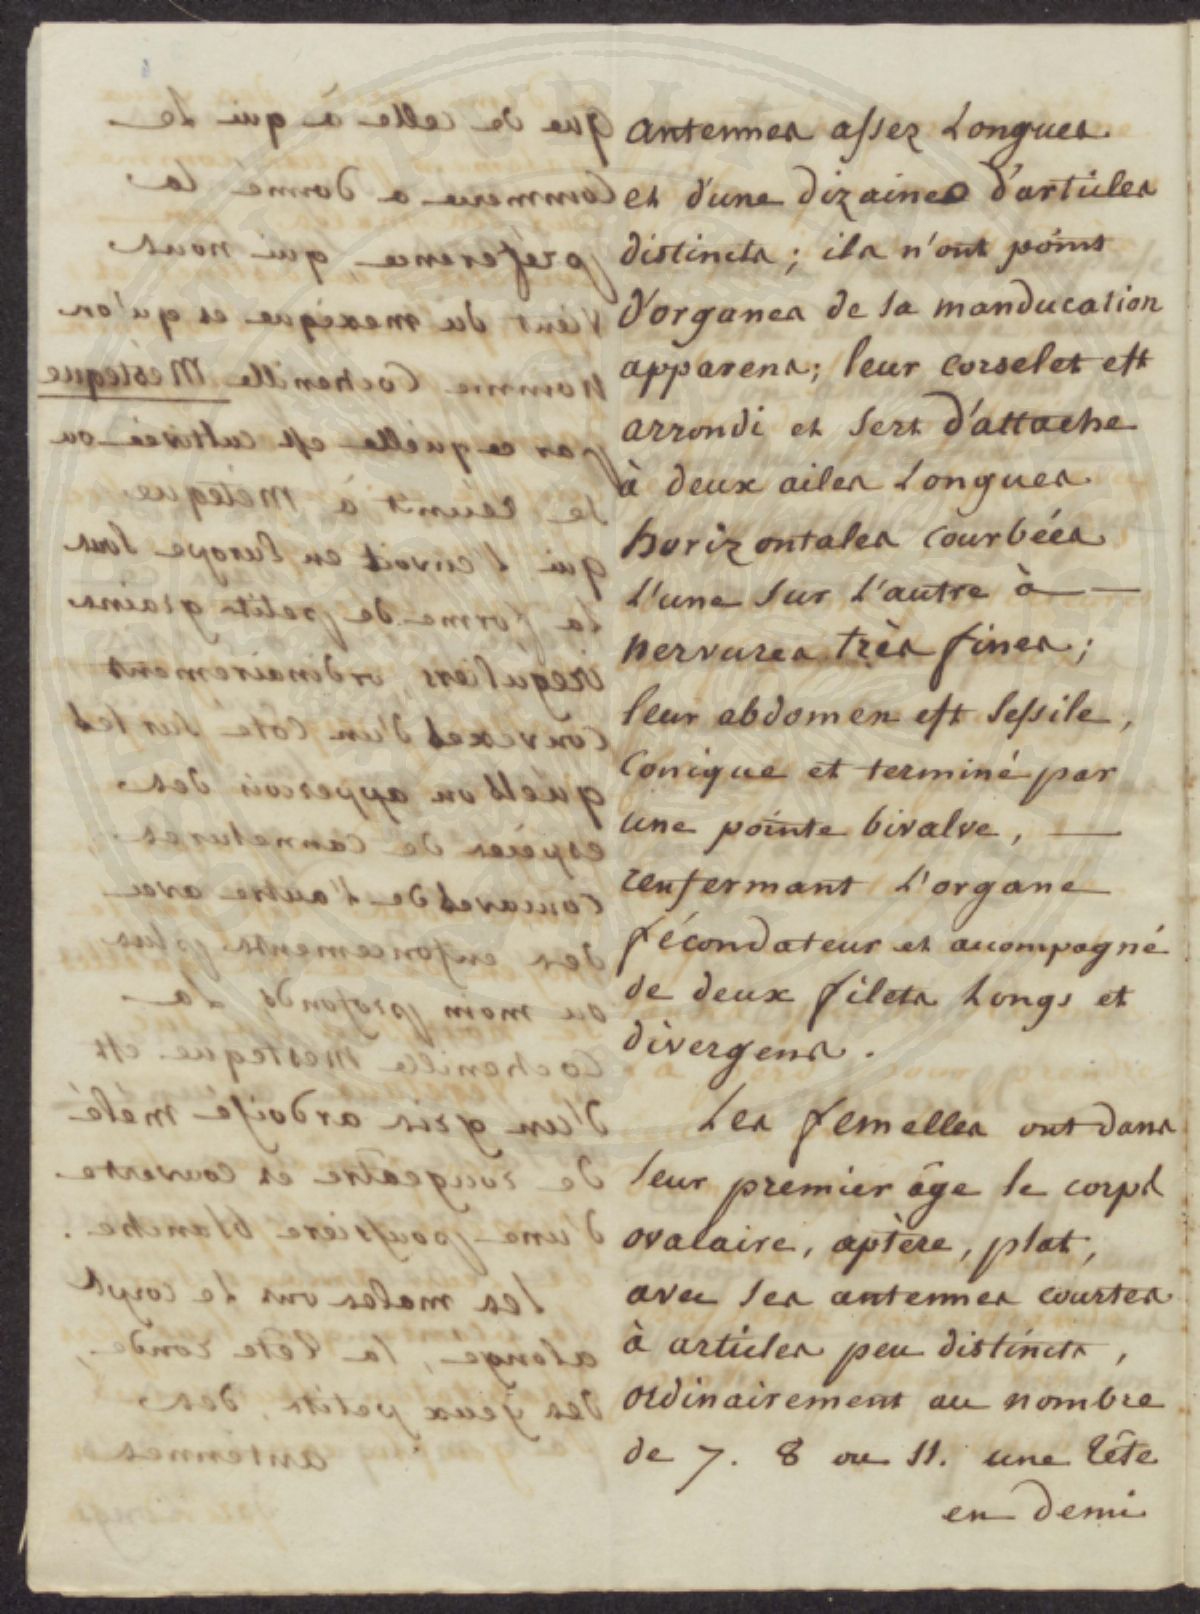 antennes assez Longues
et d'une dizaine d'articles
distincts ; ils n'ont point
d'organes de la manducation
apparens ; leur corselet est
arrondi et sert d'attache
à deux ailes Longues
horizontales courbées
L'une sur L'autre à —
nervures très fines ;
leur abdomen est sessile ,
Conique et terminé par
une pointe bivalve , —
renfermant L'organe
fécondateur et accompagné
de deux filets Longs et
divergens .
Les femelles ont dans
leur premier âge le corps
ovalaire , aptère , plat ,
avec les antennes courtes
à articles peu distincts ,
ordinairement au nombre
de 7 . 8 ou 11 . une tête
en demi
que de celle à qui le
Commerce a donné la
préférence, qui nous
Vient du mexique et qu'on
Nomme Cochenille Mesteque
par ce quelle est cultivée ou
se réunit à Méteque
qui l'envoit en Europe sous
la forme de petits grains
irréguliers, ordinairement
Convexes d'un Coté sur les
quels on apperçoit des
espèces de cannelures
concaves de l'autre avec
des enfoncements plus
ou moin profonds La
Cochenille mesteque est
d'un gris ardoise melé
de rougeâtre et couverte
d'une poussiere blanche .
Les males ont le corps
alongé, la tête ronde,
des yeux petits, des
antennes